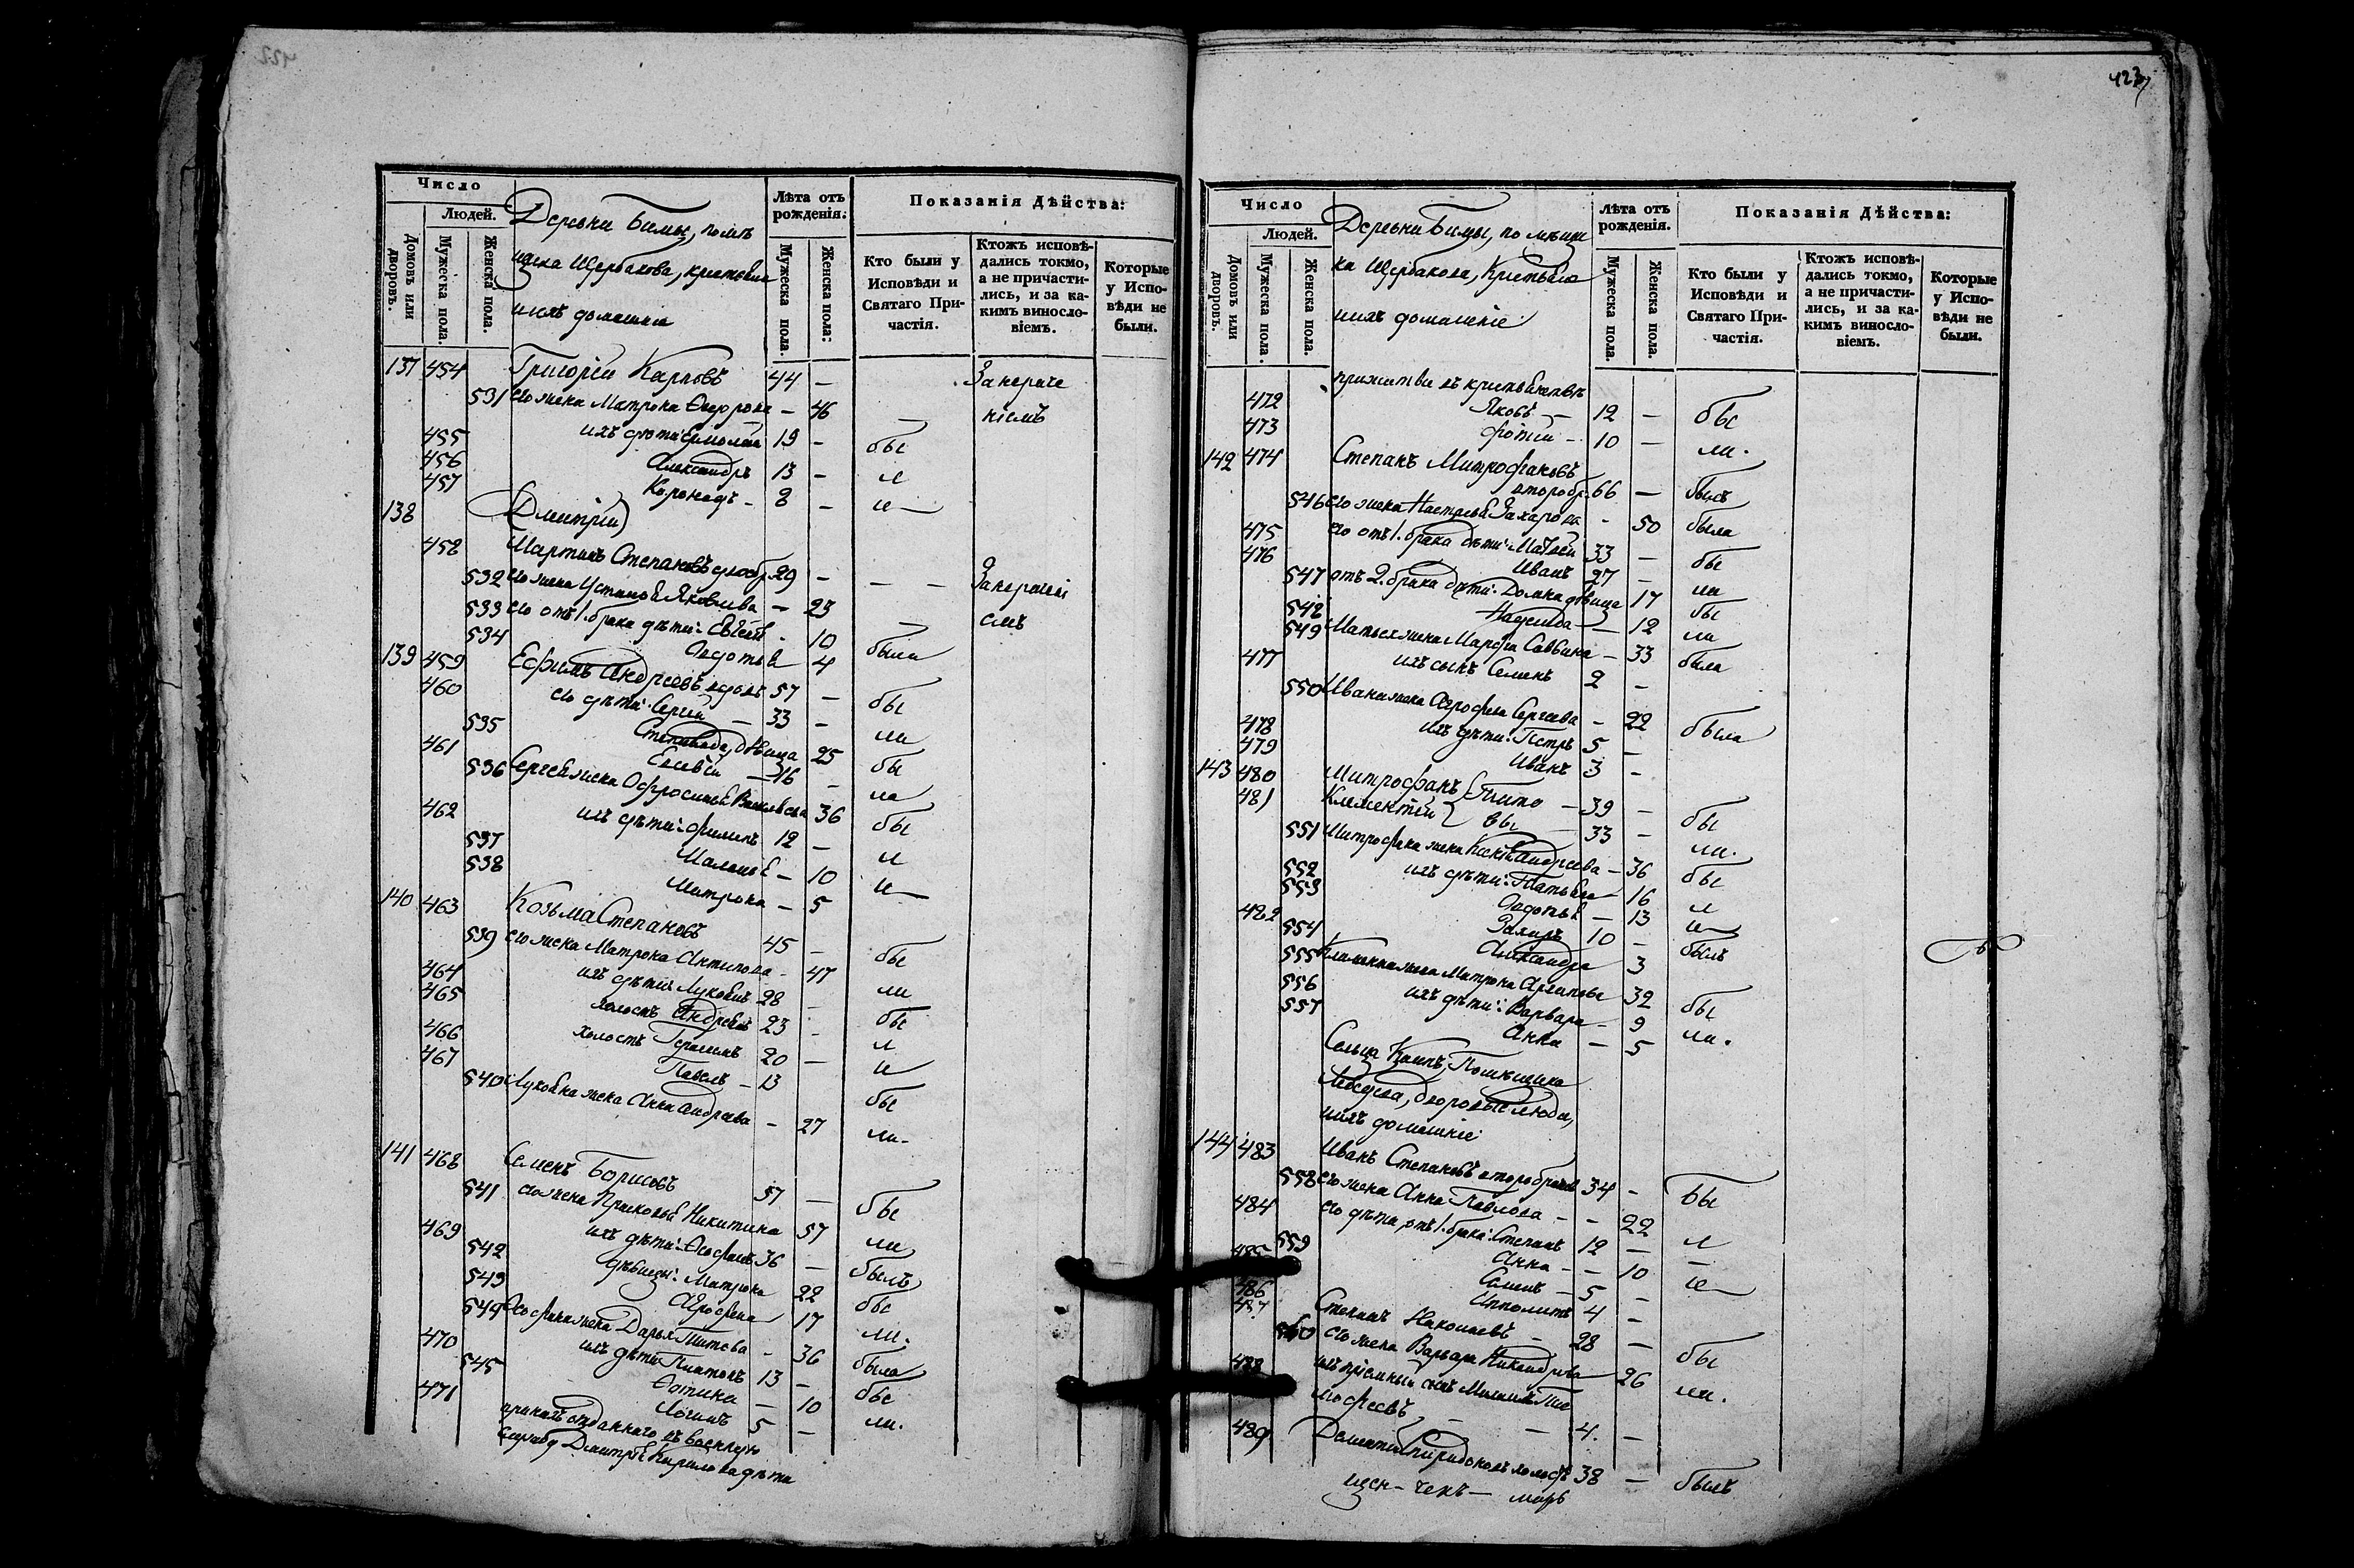 422
Число
Людей.
Домовъ или дворовъ.
Мужеска пола.
Женска пола.
Деревни Бимы, помѣ
щика Щербакова, крестьяне
ихъ домашніи
Лѣта отъ рожденія.
Мужеска пола.
Женска пола:
Показанія Дѣйства:
Кто были у Исповѣди и Святаго Причастія.
Ктожъ исповѣдались токмо, а не причастились, и за какимъ винословіемъ.
Которые у Исповѣди не были.
137 454 Григорій Карповъ 44 – Занераче
531 его жена Матрона Ѳедорова – 46 – ніемъ
455 ихъ дѣти: Ермолай 19 – бы
456 Александръ 13 – л
457 8 – и
138 (Дмитрій)
458 Мартинъ Степановъ 29 – – –
532 его жена Устинья Яковлева – 23
533 его отъ 1. брака дѣти: – 10 – емъ
534 Авдотья 4 были
139 459 Ефимъ Андреевъ вдовъ 57 –
460 его дѣти: Сергій – 33 – бы
535 Степанида, дѣвица 25 ли
461 – 16 – бы
536 Сергея жена Офросинья Васильева 36 ла
462 ихъ дѣти: Филипъ 12 – бы
537 Маланья – 10 л
538 Матрона – 5 и
140 463 Козьма Степановъ 45 –
539 его жена Матрона Антипова – 47 бы
464 ихъ дѣти: 28 – ли
465 холостъ Андрей 23 – бы
466 холостъ Герасимъ 20 – л
467 Павелъ – 13 и
540 жена Анна Андреева – 27 бы
ли.
141 468 Семенъ Борисовъ 57 –
541 его жена Прасковья Никитина 57 бы
469 ихъ дѣти: Ѳеофанъ 36 – ли
542 дѣвицы: Матрона 22 былъ
543 Агрофена 17 бы
544 Ѳеофана жена Дарья Титова – 36 ли.
470 ихъ дѣти: Платонъ 13 – была
545 Фотина – 10 бы
471 Логинъ 5 – ли.
отданнаго въ военную
службу Дмитрія Карпова дѣти
423
Число
Людей.
Домовъ или дворовъ.
Мужеска пола.
Женска пола.
Деревни Бимы, помѣщи
ка Щербакова, Крестьяне
ихъ домашніе
Лѣта отъ рожденія.
Мужеска пола.
Женска пола.
Показанія Дѣйства:
Кто были у Исповѣди и Святаго Причастія.
Ктожъ исповѣдались токмо, а не причастились, и за какимъ винословіемъ.
Которые у Исповѣди не были.
472 Яковъ – 12 – бы
473 Фотій – 10 – ли.
142 474 Степанъ Митрофановъ
второбр. 66 – былъ
546 его жена Настасья Захарова – 50 была
475 его отъ 1. брака дѣти: Матвей 33 – бы
476 Иванъ 27 – ли
547 отъ 2. брака дѣти: Домна дѣвица 17 бы
548 Надежда – 12 ли
549 Матвея жена Марфа Саввина – 33 была
477 ихъ сынъ Семенъ 2 –
550 Ивана жена Агрофена Сергеева – 22
478 ихъ дѣти: Петръ 5 – была
479 Иванъ 3 –
143 480 Митрофанъ } Тито – 39 –
481 Климентій } вы 33 – бы
551 Митрофана жена Ксенія Андреева – 36 ли.
552 ихъ дѣти: Татьяна – 16 бы
553 Авдотья – 13 л
482 10 – и
554 Александра 3 былъ
555 Климента жена Матрона Архипова 32
556 ихъ дѣти: Варвара – 9 бы
557 Анна – 5 ли.
Сельца Помѣщика
Лебедева, дворовые люди,
ихъ домашніе
144 483 Иванъ Степановъ второбрачный 34 –
558 его жена Анна Павлова – – 22 бы
484 его дѣти, отъ 1. брака: Степанъ 12 – л
559 Анна – – 10 –
485 Семенъ – 5 – и
486 Ипполитъ 4 –
487 Степанъ Николаевъ – 28 –
560 его жена Варвара Никандрова 26 бы
488 ихъ пріемный сынъ Михаилъ Ти ли.
мофеевъ – – 4. –
489 Дементій Спиридоновъ холостъ 38 – былъ